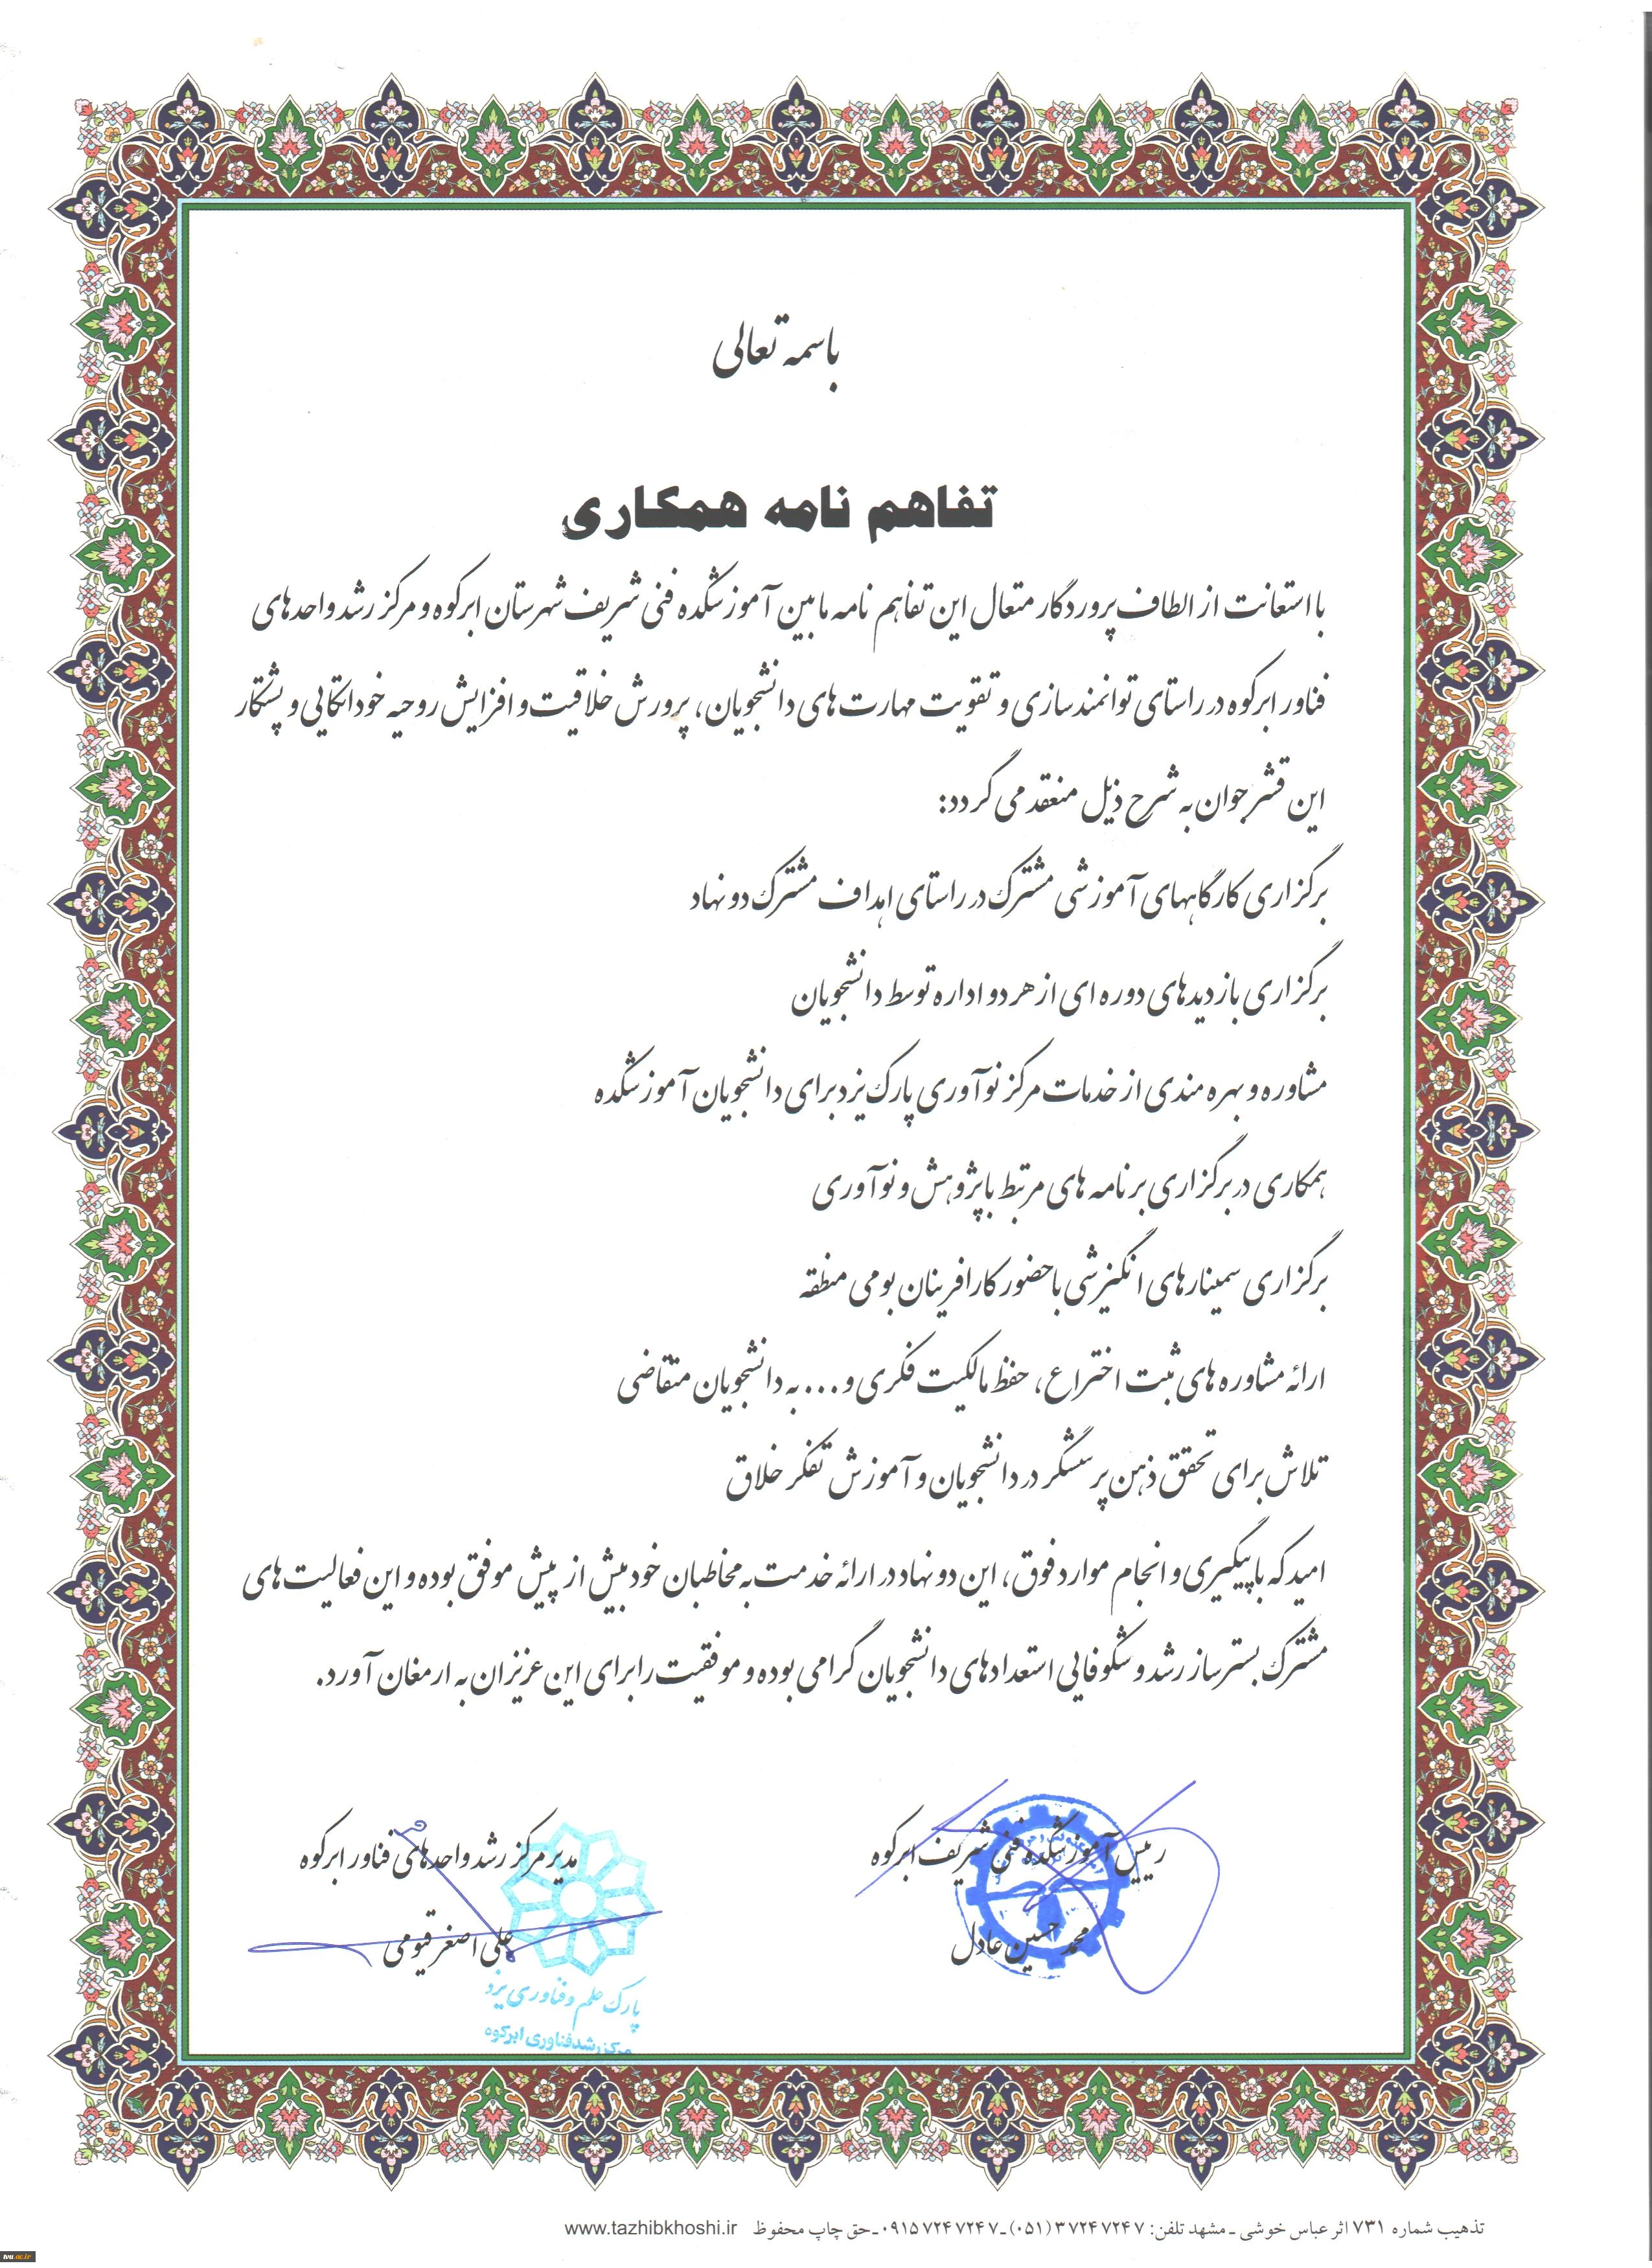 باسمه تعالی
تفاهم نامه همکاری
با استعانت از الطاف پروردگار متعال این تفاهم نامه مابین آموزشکده فنی شریف شهرستان ابرکوه و مرکز رشد واحدهای
فناور ابرکوه در راستای توانمندسازی و تقویت مهارت های دانشجویان، پرورش خلاقیت و افزایش روحیه خوداتکایی و پشتکار
این قشر جوان به شرح ذیل منعقد می گردد:
برگزاری کارگاههای آموزشی مشترک در راستای اهداف مشترک دو نهاد
برگزاری بازدیدهای دوره ای از هر دو اداره توسط دانشجویان
مشاوره و بهره مندی از خدمات مرکز نوآوری پارک یزد برای دانشجویان آموزشکده
همکاری در برگزاری برنامه های مرتبط با پژوهش و نوآوری
برگزاری سمینارهای انگیزشی با حضور کارافرینان بومی منطقه
ارائه مشاوره های ثبت اختراع، حفظ مالکیت فکری و... به دانشجویان متقاضی
تلاش برای تحقق ذهن پرسشگر در دانشجویان و آموزش تفکر خلاق
امید که با پیگیری و انجام موارد فوق، این دو نهاد در ارائه خدمت به مخاطبان خود بیش از پیش موفق بوده و این فعالیت های
مشترک بسترساز رشد و شکوفایی استعدادهای دانشجویان گرامی بوده و موفقیت را برای این عزیزان به ارمغان آورد.
رییس آموزشکده فنی شریف ابرکوه
محمد حسین عادل
مدیر مرکز رشد واحدهای فناور ابرکوه
علی اصغر قیومی
پارک علم و فناوری یزد
مرکز رشد فناوری ابرکوه
تذهیب شماره ۷۳۱ اثر عباس خوشی - مشهد تلفن: ۳۷۲۴۷۲۴۷ (۰۵۱) - ۰۹۱۵۷۲۴۷۲۴۷ - حق چاپ محفوظ www.tazhibkhoshi.ir
tvu.ac.ir